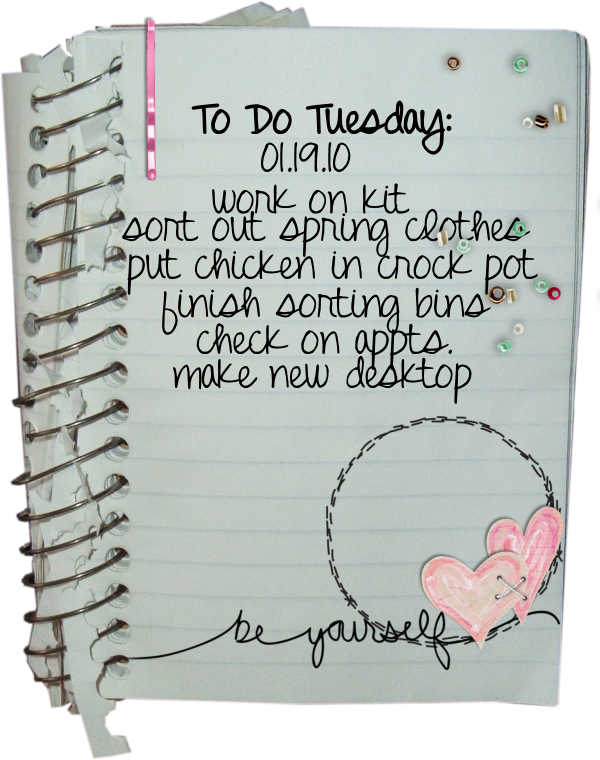 To Do Tuesday:
01.19.10
work on kit
sort out spring clothes
put chicken in crock pot
finish sorting bins
check on appts.
make new desktop
be yourself